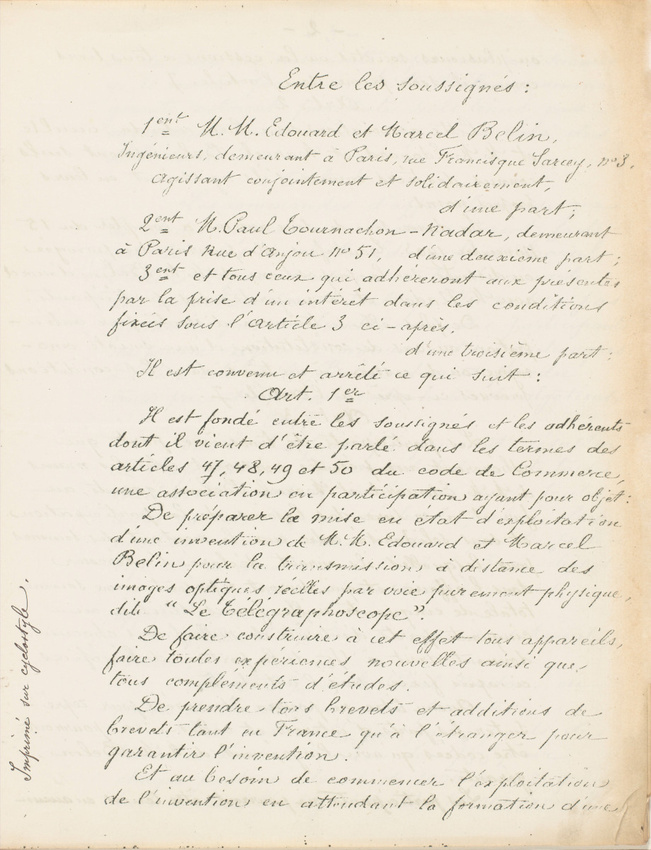 Entre les soussignés :
1ent M. M. Edouard et Marcel Belin,
Ingénieurs, demeurant à Paris, rue Francisque Sarcey, no 3,
agissant conjointement et solidairement,
d'une part ;
2ent M. Paul Tournachon - Nadar, demeurant
à Paris Rue d'Anjou no 51, d'une deuxième part ;
3ent et tous ceux qui adhéreront aux présentes
par la prise d'un intérêt dans les conditions
fixées sous l'article 3 ci-après.
d'une troisième part :
Il est convenu et arrêté ce qui suit :
Art. 1er
Il est fondé entre les soussignés et les adhérents
dont il vient d'être parlé dans les termes des
articles 47, 48, 49 et 50 du code de Commerce,
une association en participation ayant pour objet :
De préparer la mise en état d'exploitation
d'une invention de M. M. Edouard et Marcel
Belin pour la transmission à distance des
images optiques réelles par voie purement physique,
dit "Le Télégraphoscope".
De faire construire à cet effet tous appareils,
faire toutes expériences nouvelles ainsi que
tous compléments d'études.
De prendre tous brevets et additions de
brevets tant en France qu'à l'étranger pour
garantir l'invention.
Et au besoin de commencer l'exploitation
de l'invention en attendant la formation d'une
Imprimé sur cyclostyle.